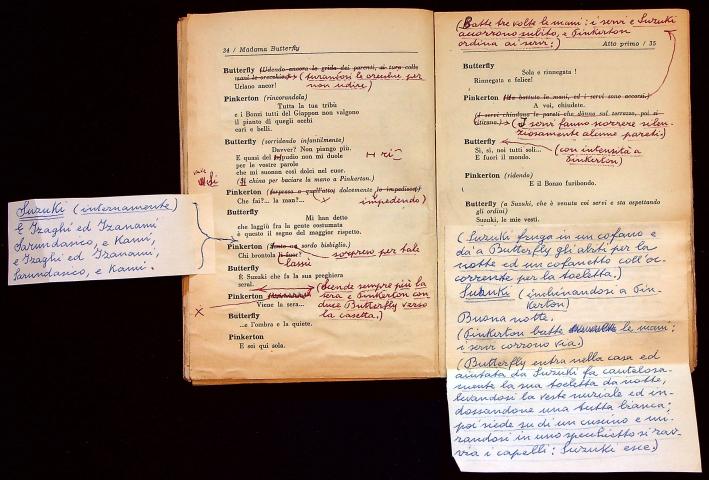 34 / Madama Butterfly
Butterfly (Udendo ancora le grida dei parenti, si tura colle
mani le orecchie) (turandosi le orecchie per
Urlano ancor! non udire)
Pinkerton (rincorandola)
Tutta la tua tribù
e i Bonzi tutti del Giappon non valgono
il pianto di quegli occhi
cari e belli.
Butterfly (sorridendo infantilmente)
Davver? Non piango più.
E quasi del ripudio non mi duole H ri
per le vostre parole
che mi suonan così dolci nel cuor.
(Si china per baciare la mano a Pinkerton.)
Pinkerton dolcemente
Che fai?... la man?... impedendo)
Butterfly
Mi han detto
che laggiù fra la gente costumata
è questo il segno del maggior rispetto.
Pinkerton sordo bisbiglio.)
Chi brontola lassù sorpreso per tale
Butterfly
È Suzuki che fa la sua preghiera
seral.
Pinkerton
Viene la sera...
(Scende sempre più la
sera e Pinkerton con
duce Butterfly verso
la casetta.)
X
Butterfly
...e l'ombra e la quiete.
Pinkerton
E sei qui sola.
Suzuki (internamente)
E Izaghi ed Izanami
Sarundasico, e Kami,
e Izaghi ed Izanami,
Sarundasico, e Kami.
(Batte tre volte le mani: i servi e Suzuki
accorrono subito, e Pinkerton
ordina ai servi:)
Atto primo / 35
Butterfly
Sola e rinnegata!
Rinnegata e felice!
Pinkerton (Ha battuto le mani, ed i servi sono accorsi.)
A voi, chiudete.
(I servi chiudono le pareti che dànno sul terrazzo, poi si
ritirano.) (I servi fanno scorrere silen-
ziosamente alcune pareti.)
Butterfly
Sì, sì, noi tutti soli... (con intensità a
E fuori il mondo. Pinkerton)
Pinkerton (ridendo)
E il Bonzo furibondo.
Butterfly (a Suzuki, che è venuta coi servi e sta aspettando
gli ordini)
Suzuki, le mie vesti.
(Suzuki fruga in un cofano e
dà a Butterfly gli abiti per la
notte ed un cofanetto coll'oc-
corrente per la toeletta.)
Suzuki (inchinandosi a Pin-
kerton)
Buona notte.
(Pinkerton batte le mani:
i servi corrono via.)
(Butterfly entra nella casa ed
aiutata da Suzuki fa cautelosa-
mente la sua toeletta da notte,
levandosi la veste nuziale ed in-
dossandone una tutta bianca;
poi siede su di un cuscino e mi-
randosi in uno specchietto si rav-
via i capelli: Suzuki esce.)